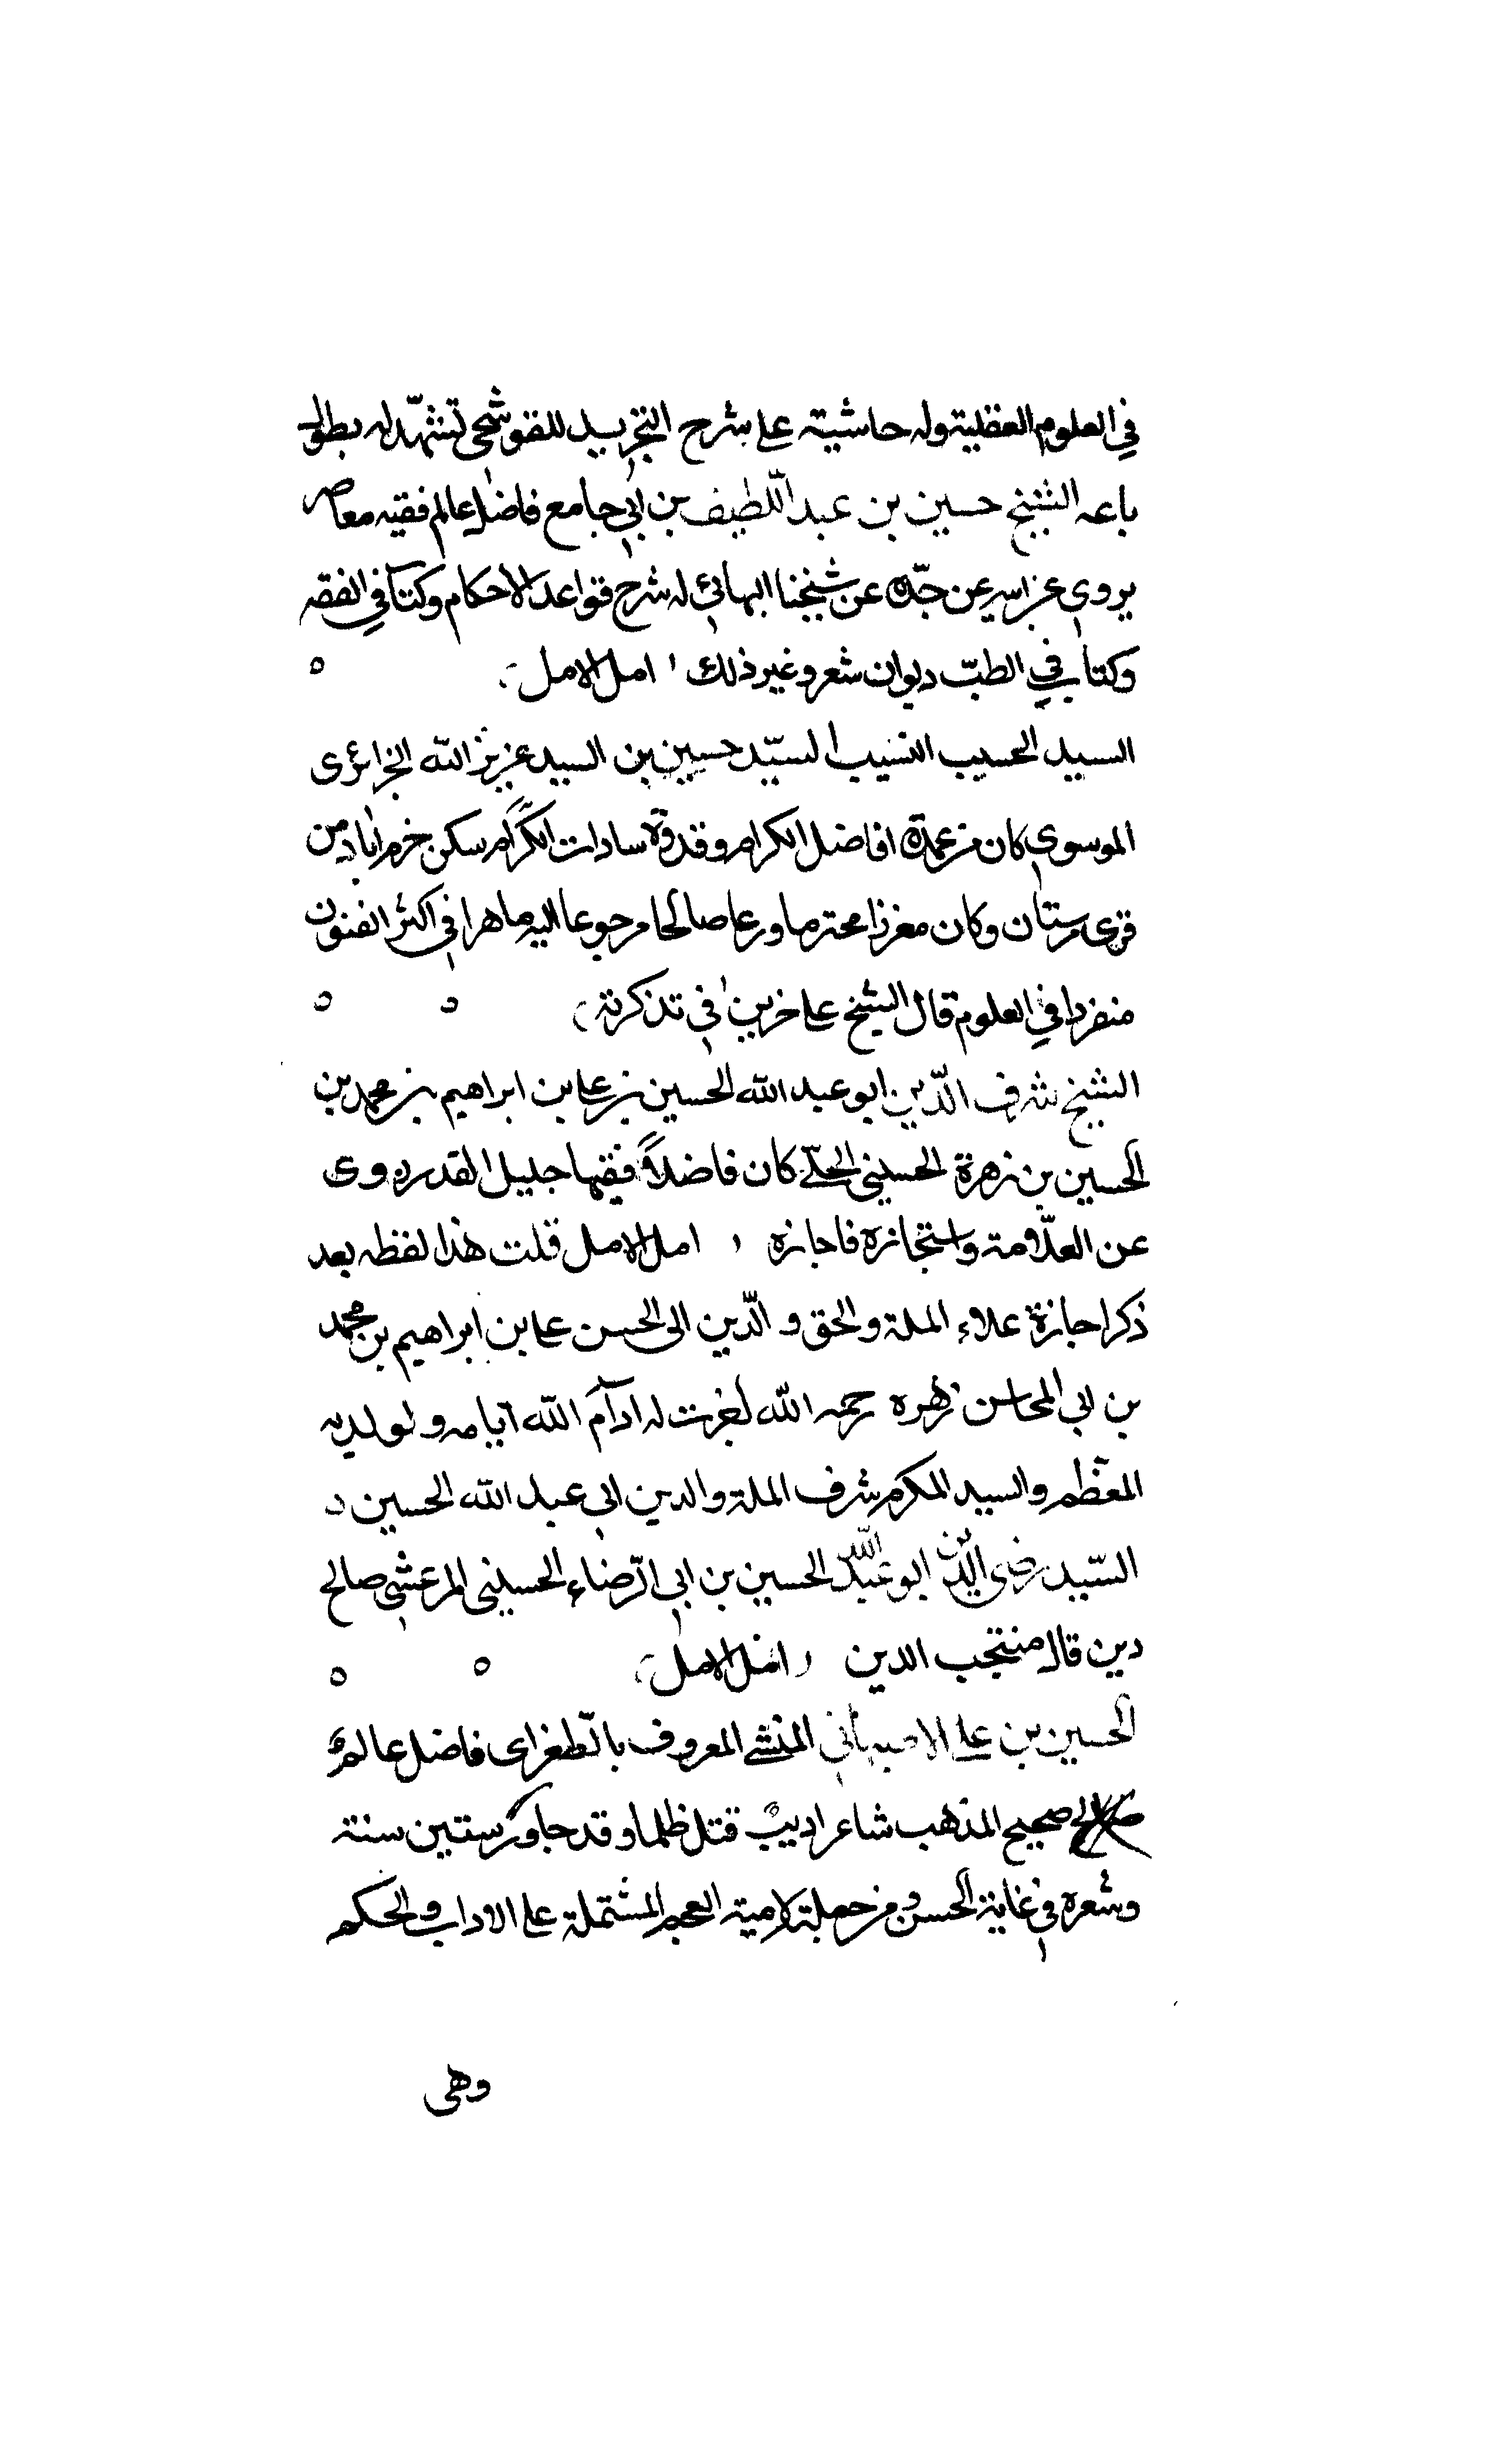 في العلوم العقلية وله حاشيته على شرح التجريد للقوشجي تشهد له بطول
باعه الشيخ حسين بن عبد اللطيف بن ابي جامع فاضل عالم فقيه معاصر
يروي عن ابيه عن جده عن شيخنا البهائي له شرح قواعد الاحكام وكتاب في الفقه
وكتاب في الطب ديوان شعر وغير ذلك امل الامل
السيد الحسيب النسيب السيد حسين بن السيد عزيز الله الجزائرى
الموسوي كان من عمدة افاضل الكرام وقدوة سادات الكرام سكن خرم اباد من
قرى لرستان وكان معززا محترما ورعا صالحا مرجوعا اليه ماهرا في اكثر الفنون
منفردا في العلوم قال الشيخ على حزين في تذكرته
الشيخ شرف الدين ابو عبد الله الحسين بن على بن ابراهيم بن محمد بن
الحسين بن زهرة الحسيني الحلبي كان فاضلاً فقيها جليل القدر روى
عن العلّامة واستجازه فاجازه امل الامل قلت هذا لفظه بعد
ذكر اجازة علاء الملة والحق و الدّين ابى الحسن على بن ابراهيم بن محمد
بن ابي المحاسن زهره رحمه الله اجزت له ادام الله ايامه و لولديه
المعظم والسيد المكرم شرف الملة والدين ابي عبد الله الحسين
السّيد رضى الدّين ابو عبد الله الحسين بن ابي الرّضاء الحسيني المرعشي صالح
دين قال منتجب الدين امل الامل
الحسين بن على الاصبهاني المنشي المعروف بالطغراى فاضل عالم
صحيح المذهب شاعر اديب قتل ظلما وقد جاوز ستين سنة
وشعره في غاية الحسن ومن جملة لامية العجم المشتملة على الاداب والحكم
وهى